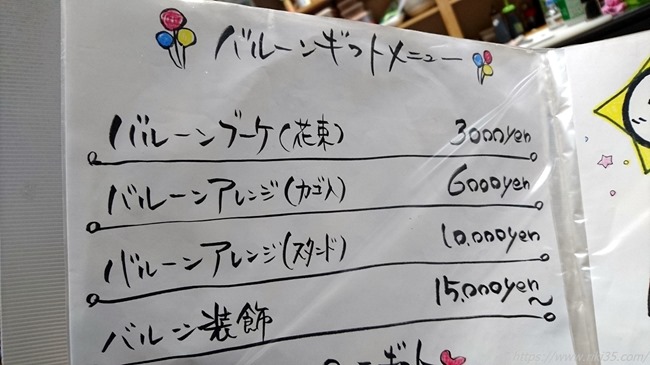 バルーンギフトメニュー
バルーンブーケ(花束) 3000yen
バルーンアレンジ(カゴ入) 6000yen
バルーンアレンジ(スタンド) 10,000yen
バルーン装飾 15,000yen〜